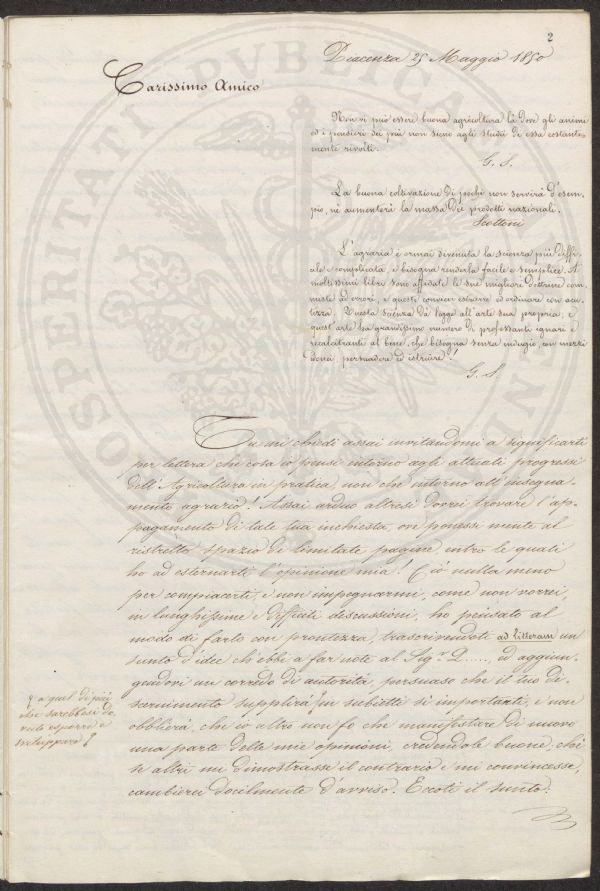 2
Piacenza 25 Maggio 1850
Carissimo Amico
Non vi può essere buona agricoltura là dove gli animi
ed i pensieri dei più non sieno agli studi di essa costante-
mente rivolti.
G. S.
La buona coltivazione di pochi non servirà d'esem-
pio, nè aumenterà la massa dei prodotti nazionali.
Scottoni
L'agraria è ormai divenuta la scienza più diffi-
cile e complicata, e bisogna renderla facile e semplice. A
moltissimi libri sono affidate le sue migliori dottrine com-
miste ad errori, e queste convien estrarre ed ordinare con acu-
tezza. Questa scienza dà legge all'arte sua propria, e
quest'arte ha grandissimo numero di professanti ignari e
recalcitranti al bene, che bisogna senza indugio, con mezzi
idonei, persuadere ed istruire!
G. S.
Tu mi chiedi assai invitandomi a significarti
per lettera che cosa io pensi intorno agli attuali progressi
dell'Agricoltura in pratica, non che intorno all'insegna-
mento agrario! Assai arduo altresì dovrei trovare l'ap-
pagamento di tale tua inchiesta, ove ponessi mente al
ristretto spazio di limitate pagine, entro le quali
ho ad esternarti l'opinione mia! E ciò nulla meno
per compiacerti, e non impegnarmi, come non vorrei,
in lunghissime e difficili discussioni, ho pensato al
modo di farlo con prontezza, trascrivendoti ad litteram un
sunto d'idee ch'ebbi a far note al Sigr. D....., ed aggiun-
gendovi un corredo di autorità persuaso che il tuo di-
scernimento supplirà in subietti sì importanti, e non
obblierà, che io altro non fo che manifestare di nuovo
una parte delle mie opinioni, credendole buone, chè
se altri mi dimostrasse il contrario e mi convincesse,
cambierei docilmente d'avviso. Eccoti il sunto:
a quel di più
che sarebbesi do-
vuto esporre e
sviluppare
BONONIA PUBLICAE PROSPERITATI